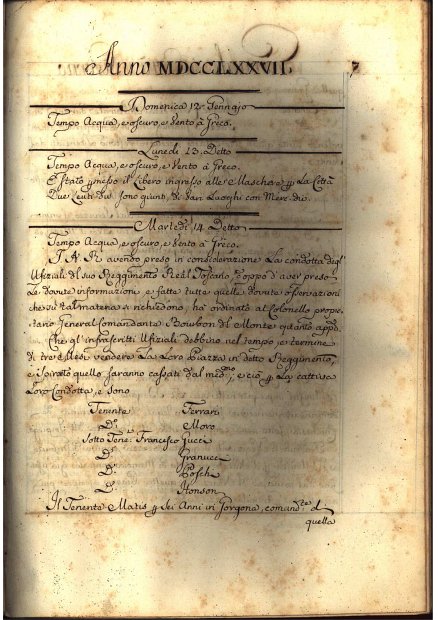 Anno MDCCLXXVII.
7
Domenica 12. Gennajo
Tempo Acqua, e oscuro, e Vento à Greco.
Lunedi 13. Detto
Tempo Acqua, e oscuro, e Vento à Greco.
E' Stato il Libero ingresso alle Maschere La Città
Due Leuti sono giunti, da Luoghi con Merc.
Martedì 14 Detto
Tempo Acqua, e oscuro, e Vento à Greco.
S. A. R. avendo preso in considerazione La condotta degl'
Ufiziali del suo Reggimento Real Toscano, doppo d'aver preso
Le dovute informazioni, e fatte tutte quelle dovute osservazioni
che su tal materia si richiedono, ha ordinato al Colonello proprie-
tario General Comandante Bourbon del Monte quanto app.
Che gl'infrascritti Ufiziali debbino nel tempo, e termine
di tre Mesi vendere La Loro Piazza in detto Reggimento,
e Spirato quello saranno cassati dal med.mo; e ciò La cattiva
Loro Condotta, e sono
Tenente Ferrari
D.o Moro
Sotto Ten.e Francesco Gucci
D.o Granucci
D.o Boschi
D.o Honson
Il Tenente Matis Sei Anni in Gorgona, comand.te d
quella